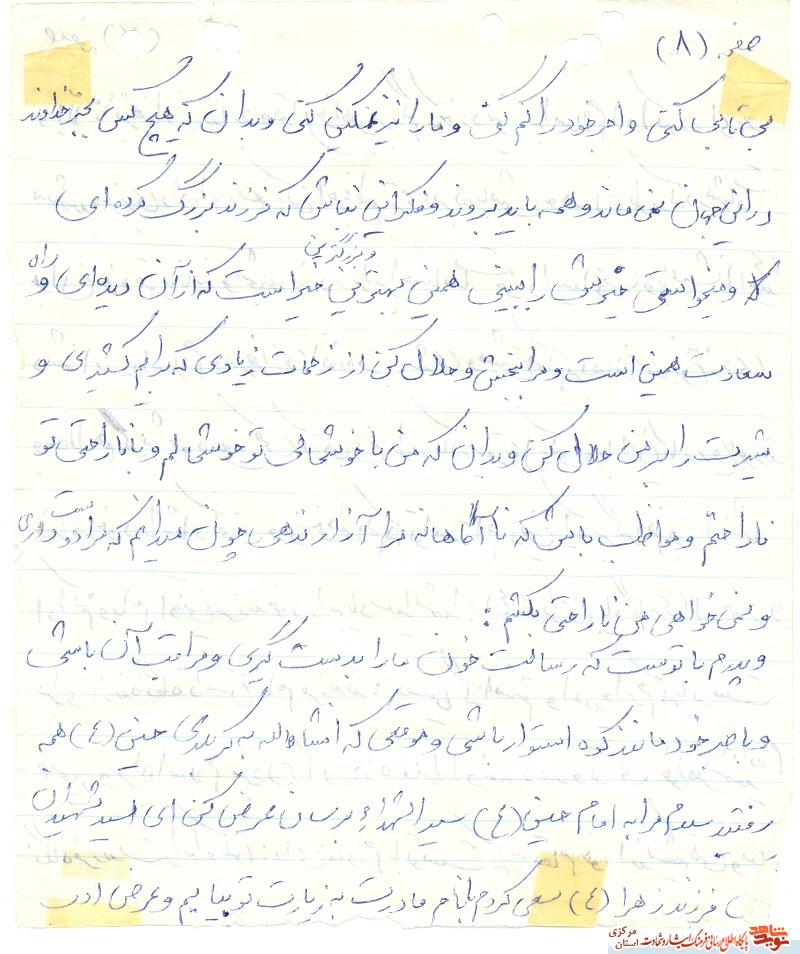 صفحه (۸)
بی تابی کنی و اجر خود را کم کنی و ما را نیز غمگین کنی و بدان که هیچ کس بجز خداوند
در این جهان نمی ماند و همه باید بروند و فکر این نباش که فرزند بزرگ کرده ای
و میخواستی خیرش را ببینی همین بهترین و بزرگترین خیر است که از آن دیده ای و راه
سعادت همین است و مرا ببخش و حلال کن از زحمات زیادی که برایم کشیدی و
شیرت را بر من حلال کن و بدان که من با خوشحالی تو خوشحالم و با ناراحتی تو
ناراحتم و مواظب باش که ناآگاهانه مرا آزار ندهی چون میدانم که مرا دوست داری
و نمی خواهی من ناراحتی بکشم:
و پدرم با توست که رسالت خون ما را بدست گیری و مراقب آن باشی
و با صبر خود مانند کوه استوار باشی و موقعی که انشاءالله به کربلای حسین (ع) همه
رفتند سلام مرا به امام حسین (ع) سید الشهداء برسان عرض کن ای سید شهیدان
فرزند زهرا (ع) سعی کردم با نام مادرت به زیارت تو بیایم و عرض ادب
نوید شاهد
پایگاه اطلاع رسانی فرهنگ ایثار و شهادت
مرکزی
استان